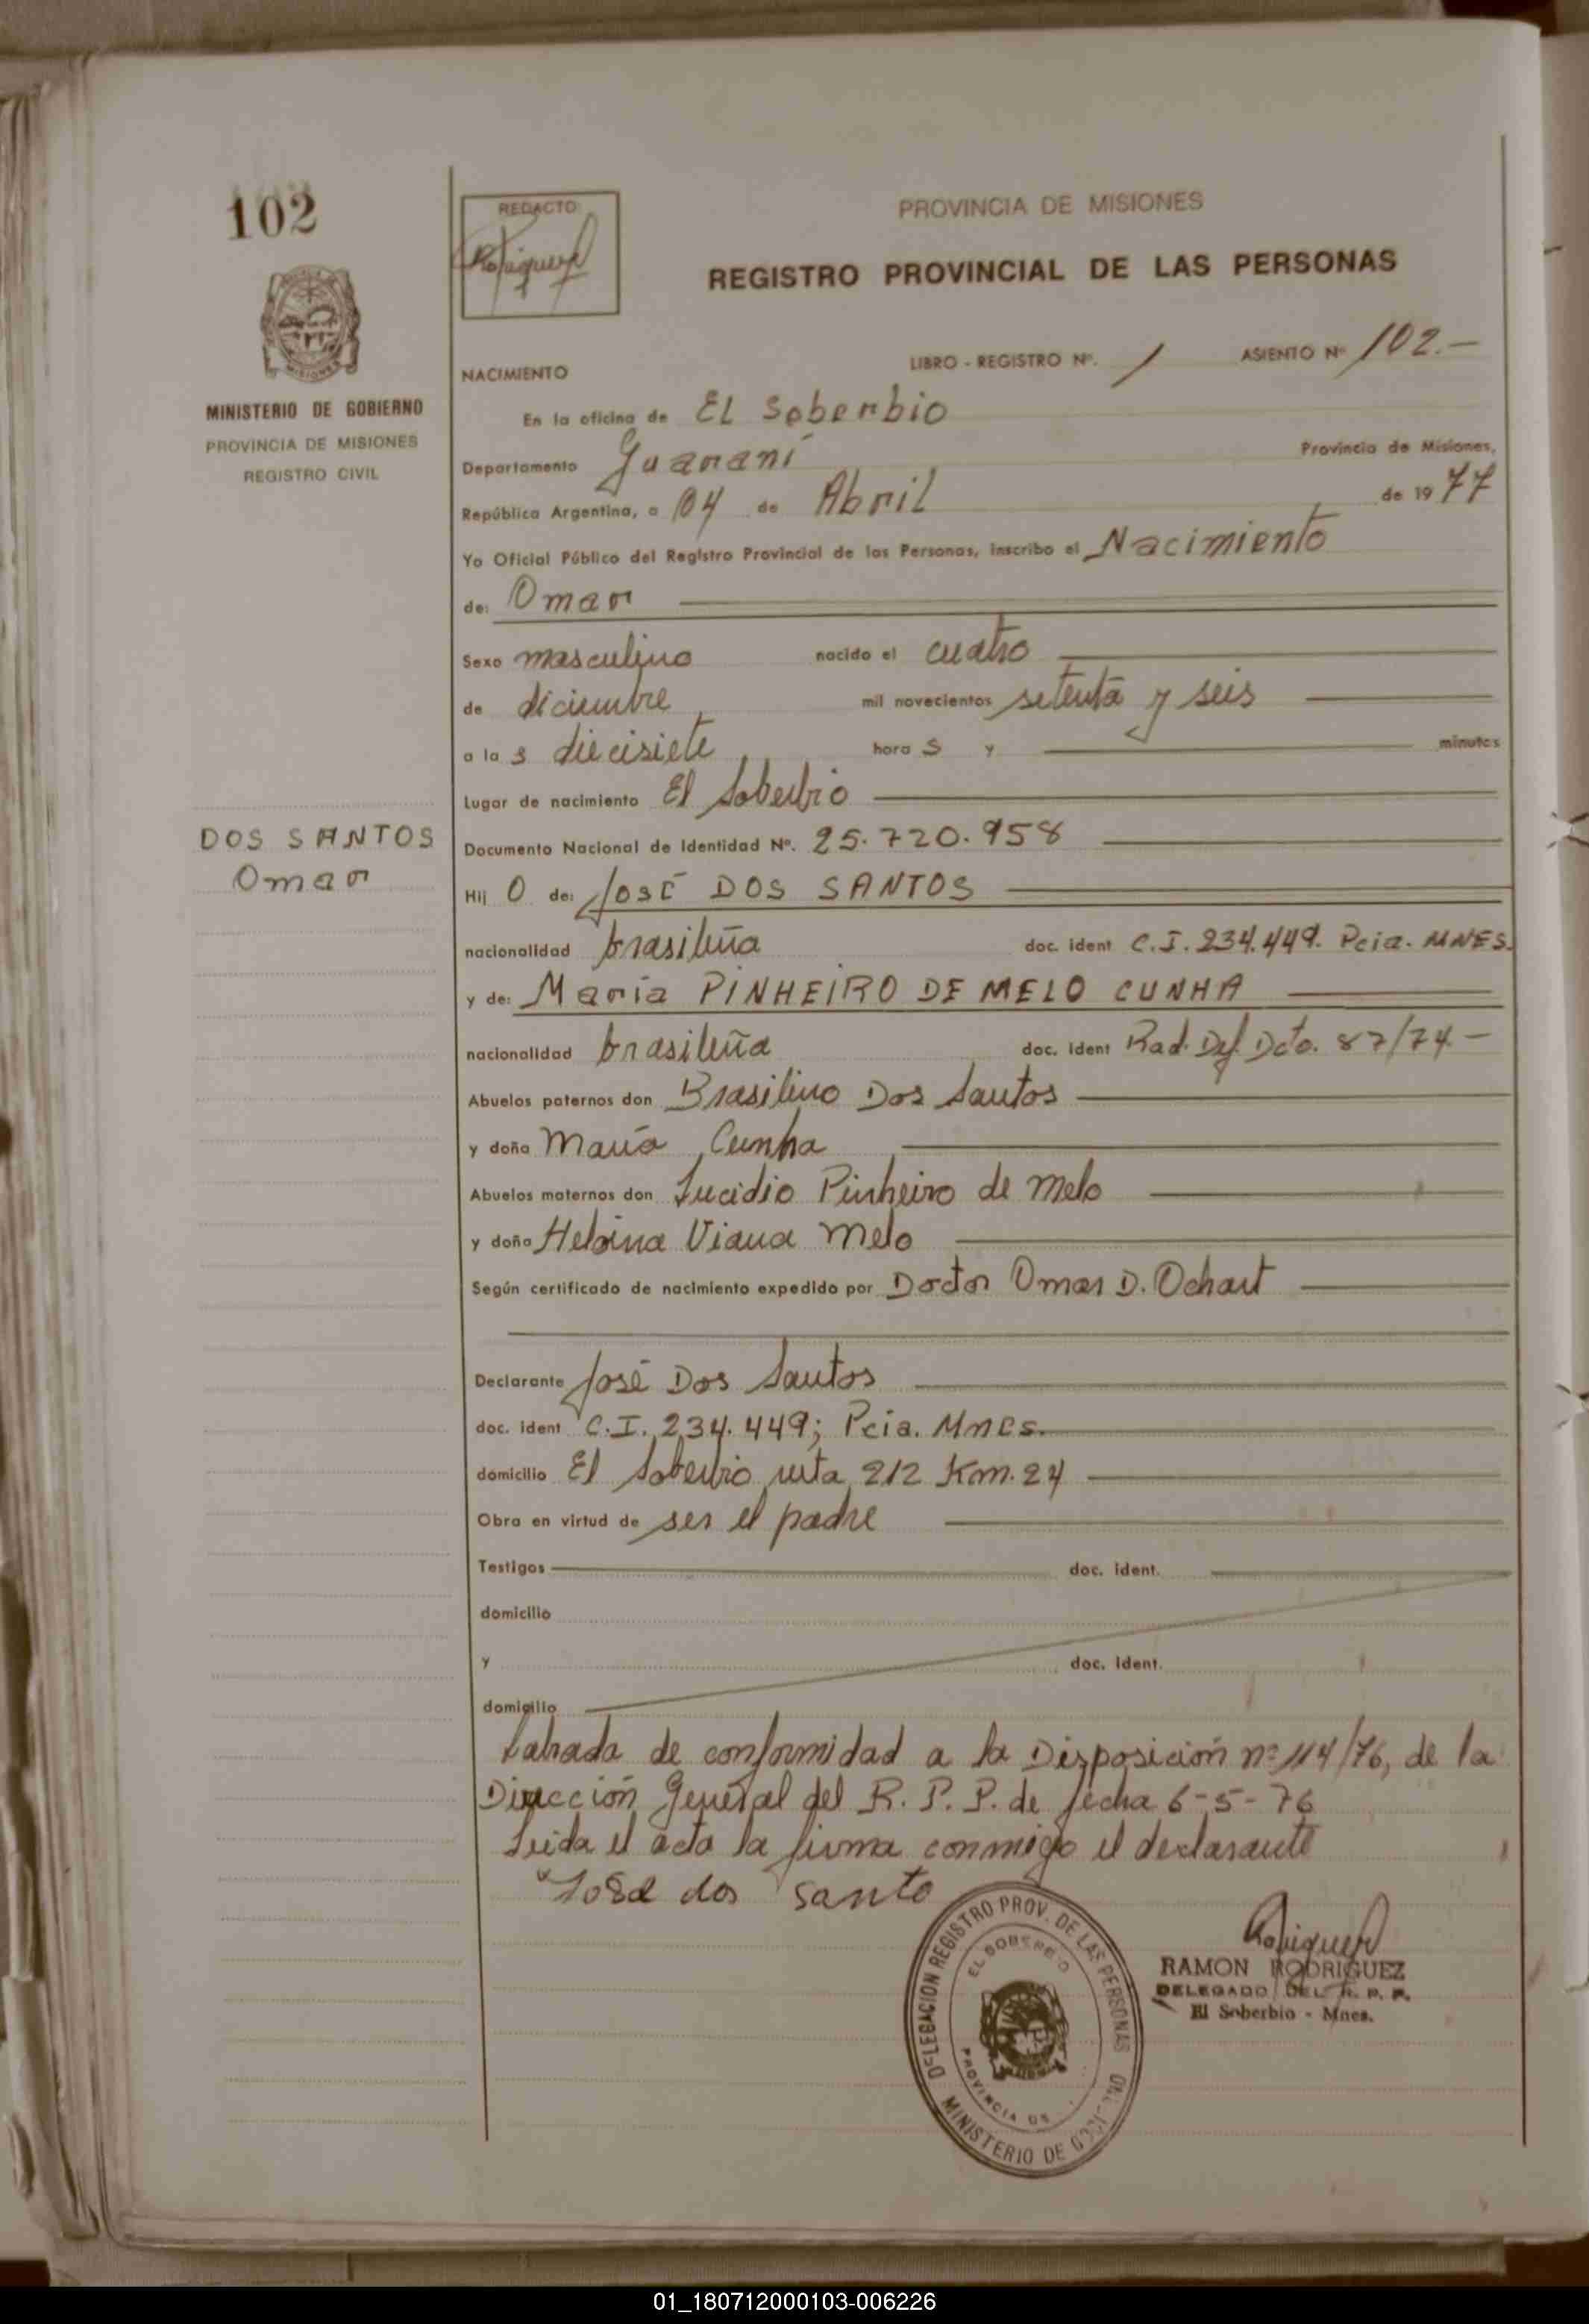 102
REDACTO:
PROVINCIA DE MISIONES
REGISTRO PROVINCIAL DE LAS PERSONAS
MISIONES
MINISTERIO DE GOBIERNO
PROVINCIA DE MISIONES
REGISTRO CIVIL
NACIMIENTO
LIBRO - REGISTRO Nº. 1 ASIENTO Nº 102.-
En la oficina de EL Soberbio
Departamento Guaraní Provincia de Misiones,
República Argentina, a 04 de Abril de 1977
Yo Oficial Público del Registro Provincial de las Personas, inscribo el Nacimiento
de: Omar
Sexo masculino nacido el cuatro
de diciembre mil novecientos setenta y seis
a las diecisiete horas y minutos
Lugar de nacimiento El Soberbio
Documento Nacional de Identidad Nº. 25.720.958
DOS SANTOS
Omar
Hijo de: José DOS SANTOS
nacionalidad brasileña doc. ident C.I. 234.449. Pcia. MNES.
y de: María PINHEIRO DE MELO CUNHA
nacionalidad brasileña doc. ident Rad. Def. Dcto. 87/74.-
Abuelos paternos don Brasilino Dos Santos
y doña María Cunha
Abuelos maternos don Lucidio Pinheiro de Melo
y doña Heloina Viana Melo
Según certificado de nacimiento expedido por Doctor Omar D. Ochart
Declarante José Dos Santos
doc. ident C.I. 234.449; Pcia. Mnes.
domicilio El Soberbio ruta 212 Km. 24
Obra en virtud de ser el padre
Testigos doc. ident.
domicilio
y doc. ident.
domicilio
Labrada de conformidad a la Disposición nº 114/76, de la
Dirección General del R. P. P. de fecha 6-5-76
Leida el acta la firma conmigo el declarante
José dos santo
DELEGACION REGISTRO PROV. DE LAS PERSONAS
EL SOBERBIO
PROVINCIA DE
MINISTERIO DE GOBIERNO
RAMON RODRIGUEZ
DELEGADO DEL R. P. P.
El Soberbio - Mnes.
01_180712000103-006226